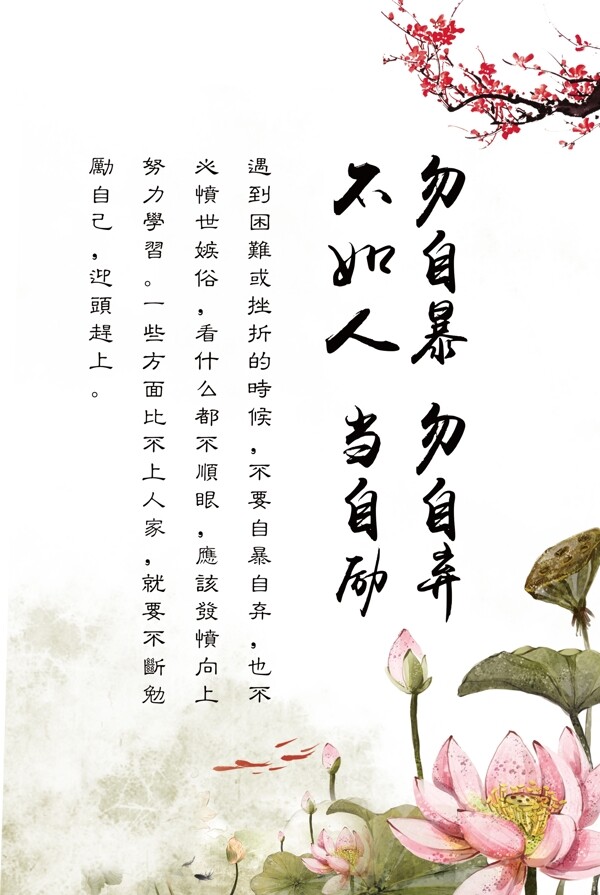 勿自暴 勿自弃
不如人 当自励
遇到困難或挫折的時候，不要自暴自弃，也不
必憤世嫉俗，看什么都不順眼，應該發憤向上
努力學習。一些方面比不上人家，就要不斷勉
勵自己，迎頭趕上。